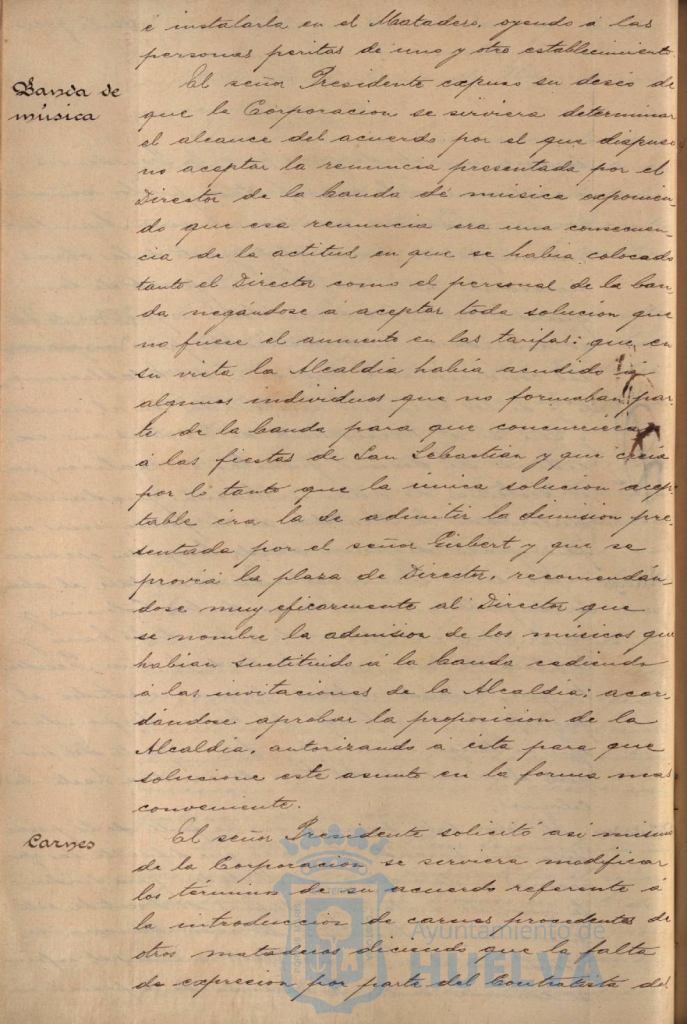 é instalarla en el Matadero, oyendo á las
personas peritas de uno y otro establecimiento.
Banda de
música
El señor Presidente expuso su deseo de
que la Corporacion se serviera determinar
el alcance del acuerdo por el que dispuso
no aceptar la renuncia presentada por el
Director de la banda de música exponien-
do que esa renuncia era una consecuen-
cia de la actitud en que se habia colocado
tanto el Director como el personal de la ban-
da negándose á aceptar toda solución que
no fuese el aumento en las tarifas: que en
su vista la Alcaldia habia acudido á
algunos individuos que no formaban par-
te de la banda para que concurrieran
á las fiestas de San Sebastian y que creia
por lo tanto que la única solucion acep-
table era la de admitir la dimision pre-
sentada por el señor Gisbert y que se
provea la plaza de Director, recomendán-
dose muy eficazmente al Director que
se nombre la admision de los músicos que
habian sustituido á la banda cediendo
á las invitaciones de la Alcaldia; acor-
dándose aprobar la proposicion de la
Alcaldia, autorizando á ésta para que
solucione este asunto en la forma mas
conveniente.
Carnes
El señor Presidente solicitó asi mismo
de la Corporacion se serviera modificar
los términos de su acuerdo referente á
la introduccion de carnes procedentes de
otros mataderos diciendo que la falta
de expresion por parte del Contratista del
Ayuntamiento de
HUELVA